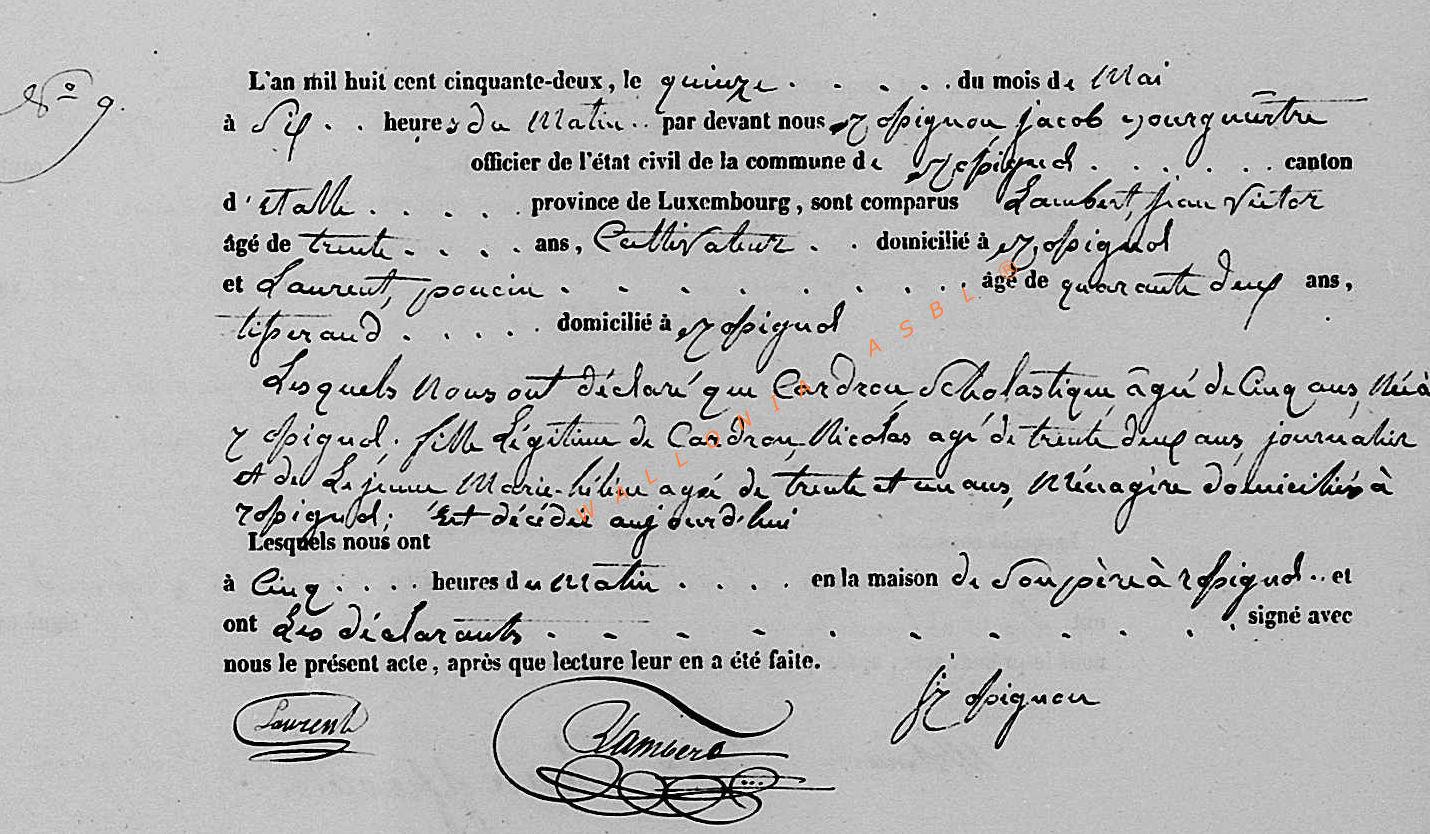 N.o 9.
L'an mil huit cent cinquante-deux, le quinze . . . . . du mois de Mai
à Six . . heures du Matin . . par devant nous Rossignon, jacob Bourguemtre
officier de l'état civil de la commune de Rossignol . . . . . canton
d'Etalle . . . . . province de Luxembourg, sont comparus Lambert, jean Victor
âgé de trente . . . . ans, Cultivateur . . domicilié à Rossignol
et Laurent, poncin . . . . . . . . . âgé de quarante deux ans,
tisserand . . . . . domicilié à Rossignol
Lesquels Nous ont déclaré que Cardron Scholastique âgée de Cinq ans, Née à
rossignol, fille Légitime de Cardron, Nicolas agé de trente deux ans, journalier
et de Lejeune Marie-hélène agée de trente et un ans, Ménagère domiciliés à
rossignol; Est décédée aujourd'hui
Lesquels nous ont
à Cinq . . . . heures du Matin . . . . en la maison de Son père à rossignol . . et
ont Les déclarants . . . . . . . . . . signé avec
nous le présent acte, après que lecture leur en a été faite.
Laurent Lambert j rossignon
WALLONIA ASBL ®